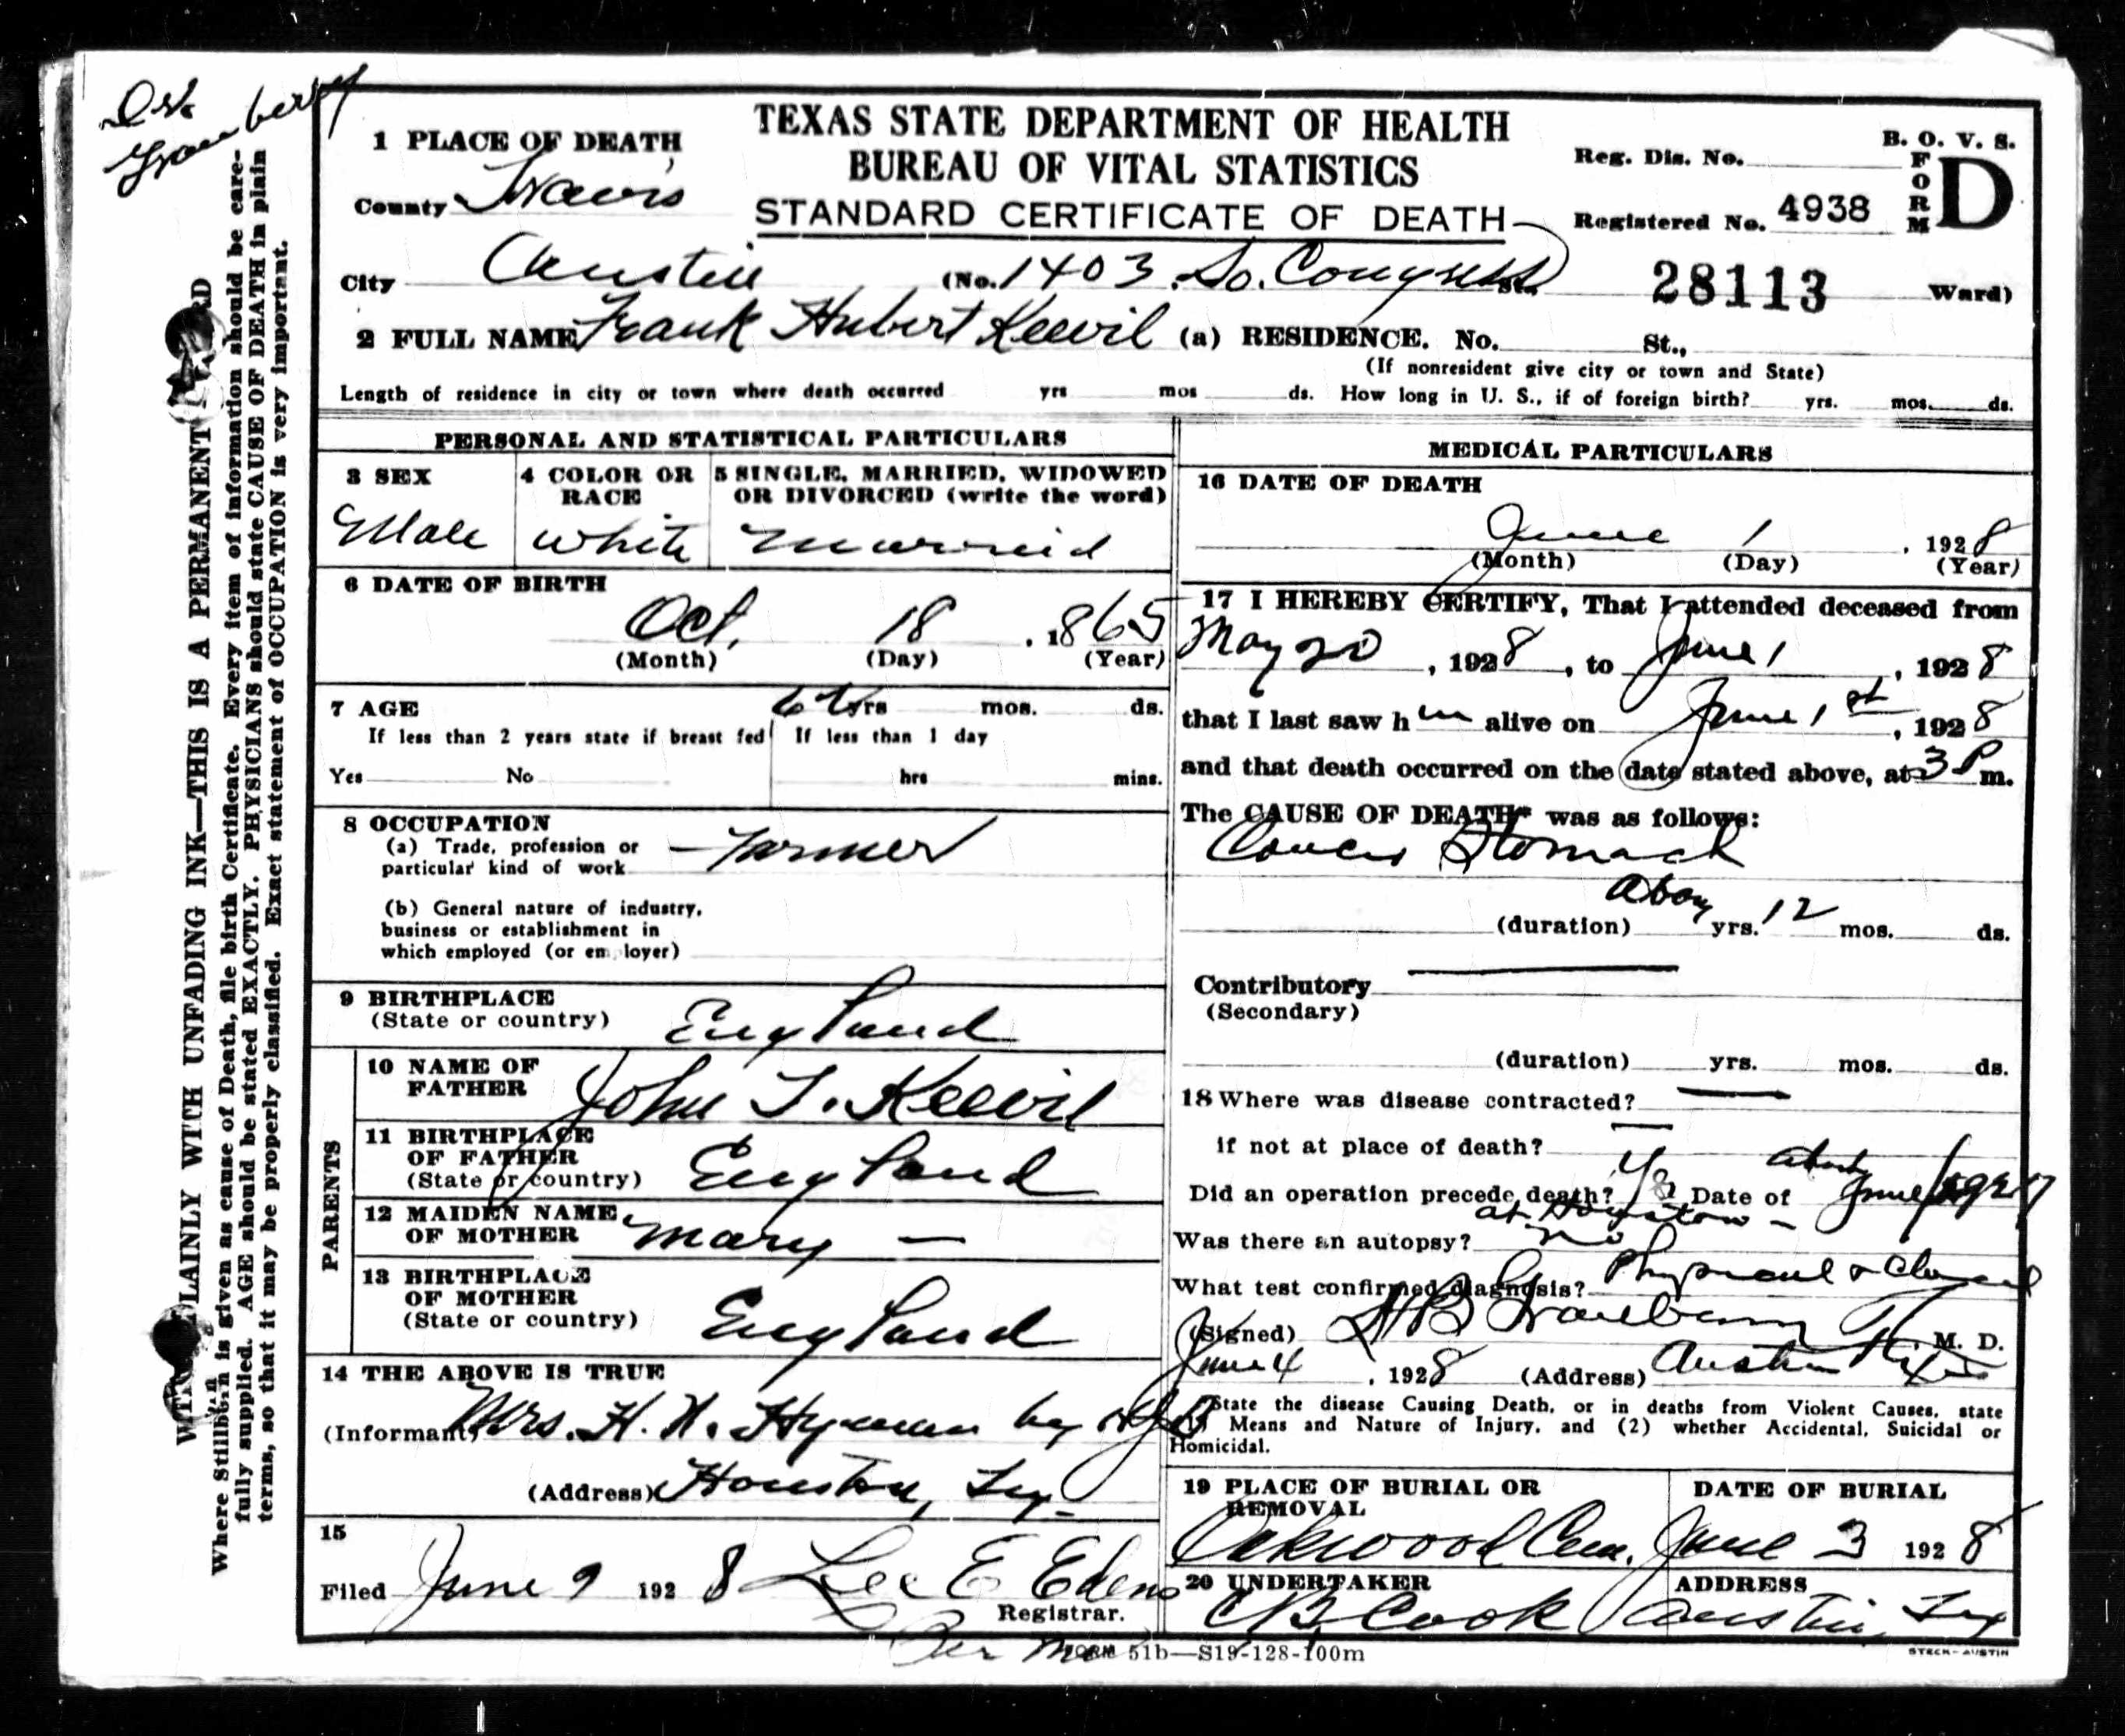 TEXAS STATE DEPARTMENT OF HEALTH
BUREAU OF VITAL STATISTICS
STANDARD CERTIFICATE OF DEATH
B. O. V. S.
FORM D
Reg. Dis. No.
Registered No. 4938
28113
1 PLACE OF DEATH
County Travis
City Austin (No. 1403 So. Congress St. Ward)
2 FULL NAME Frank Hubert Keevil (a) RESIDENCE. No. St.,
(If nonresident give city or town and State)
Length of residence in city or town where death occurred yrs mos ds. How long in U. S., if of foreign birth? yrs. mos. ds.
PERSONAL AND STATISTICAL PARTICULARS
3 SEX
Male
4 COLOR OR RACE
White
5 SINGLE, MARRIED, WIDOWED
OR DIVORCED (write the word)
Married
6 DATE OF BIRTH
Oct. 18, 1865
(Month) (Day) (Year)
7 AGE 62 yrs mos. ds.
If less than 2 years state if breast fed If less than 1 day
Yes No hrs mins.
8 OCCUPATION
(a) Trade, profession or
particular kind of work Farmer
(b) General nature of industry,
business or establishment in
which employed (or employer)
9 BIRTHPLACE
(State or country) England
PARENTS
10 NAME OF
FATHER John T. Keevil
11 BIRTHPLACE
OF FATHER
(State or country) England
12 MAIDEN NAME
OF MOTHER Mary —
13 BIRTHPLACE
OF MOTHER
(State or country) England
14 THE ABOVE IS TRUE
(Informant) Mrs. H. H. Hyman by
(Address) Houston, Tex.
15
Filed June 9 1928 Lee E Edens
Registrar.
Per
MEDICAL PARTICULARS
16 DATE OF DEATH
June 1, 1928
(Month) (Day) (Year)
17 I HEREBY CERTIFY, That I attended deceased from
May 20, 1928, to June 1, 1928
that I last saw him alive on June 1st, 1928
and that death occurred on the date stated above, at 3 P m.
The CAUSE OF DEATH* was as follows:
Cancer Stomach
(duration) about yrs. 12 mos. ds.
Contributory —
(Secondary)
(duration) yrs. mos. ds.
18 Where was disease contracted? —
if not at place of death? —
Did an operation precede death? Yes Date of about June 1927
at Houston —
Was there an autopsy? no
What test confirmed diagnosis? Physical & Clinical
(Signed) M. D.
June 4, 1928 (Address) Austin Texas
*State the disease Causing Death, or in deaths from Violent Causes, state
(1) Means and Nature of Injury, and (2) whether Accidental, Suicidal or
Homicidal.
19 PLACE OF BURIAL OR
REMOVAL
Oakwood Cem.
DATE OF BURIAL
June 3 1928
20 UNDERTAKER
C B Cook
ADDRESS
Austin Tex
FORM 51b—S19-128-100m
STECK-AUSTIN
WRITE PLAINLY WITH UNFADING INK—THIS IS A PERMANENT RECORD
Where Stillborn is given as cause of Death, file birth Certificate. Every item of information should be care-
fully supplied. AGE should be stated EXACTLY. PHYSICIANS should state CAUSE OF DEATH in plain
terms, so that it may be properly classified. Exact statement of OCCUPATION is very important.